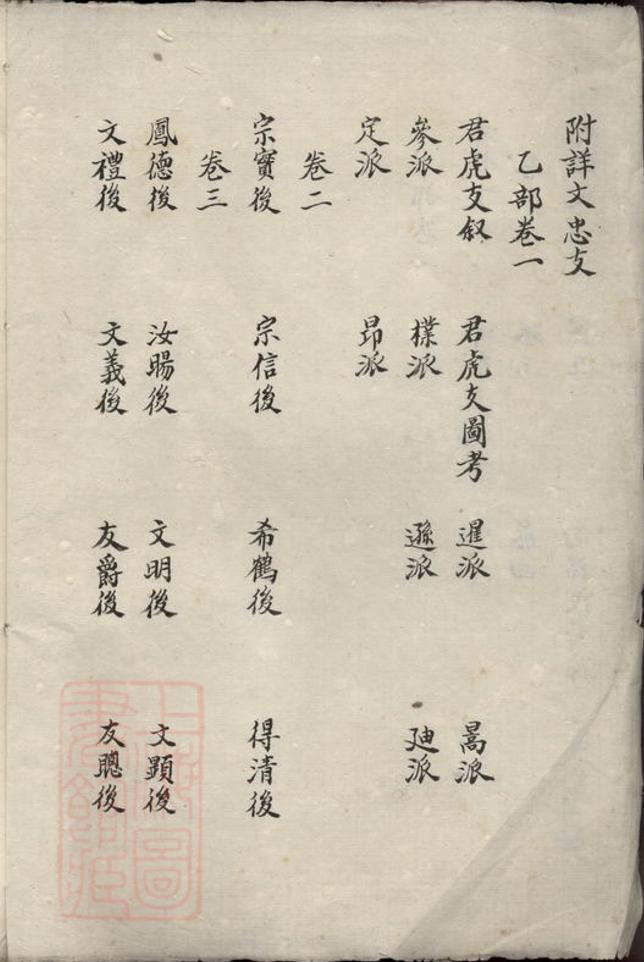 附詳文忠支
乙部卷一
君虎支叙 君虎支圖考 暹派 暠派
參派 檏派 遜派 廸派
定派 昂派
卷二
宗寳後 宗信後 希鶴後 得清後
卷三
鳳德後 汝暘後 文明後 文顯後
文禮後 文義後 友爵後 友聰後
上海圖書館藏